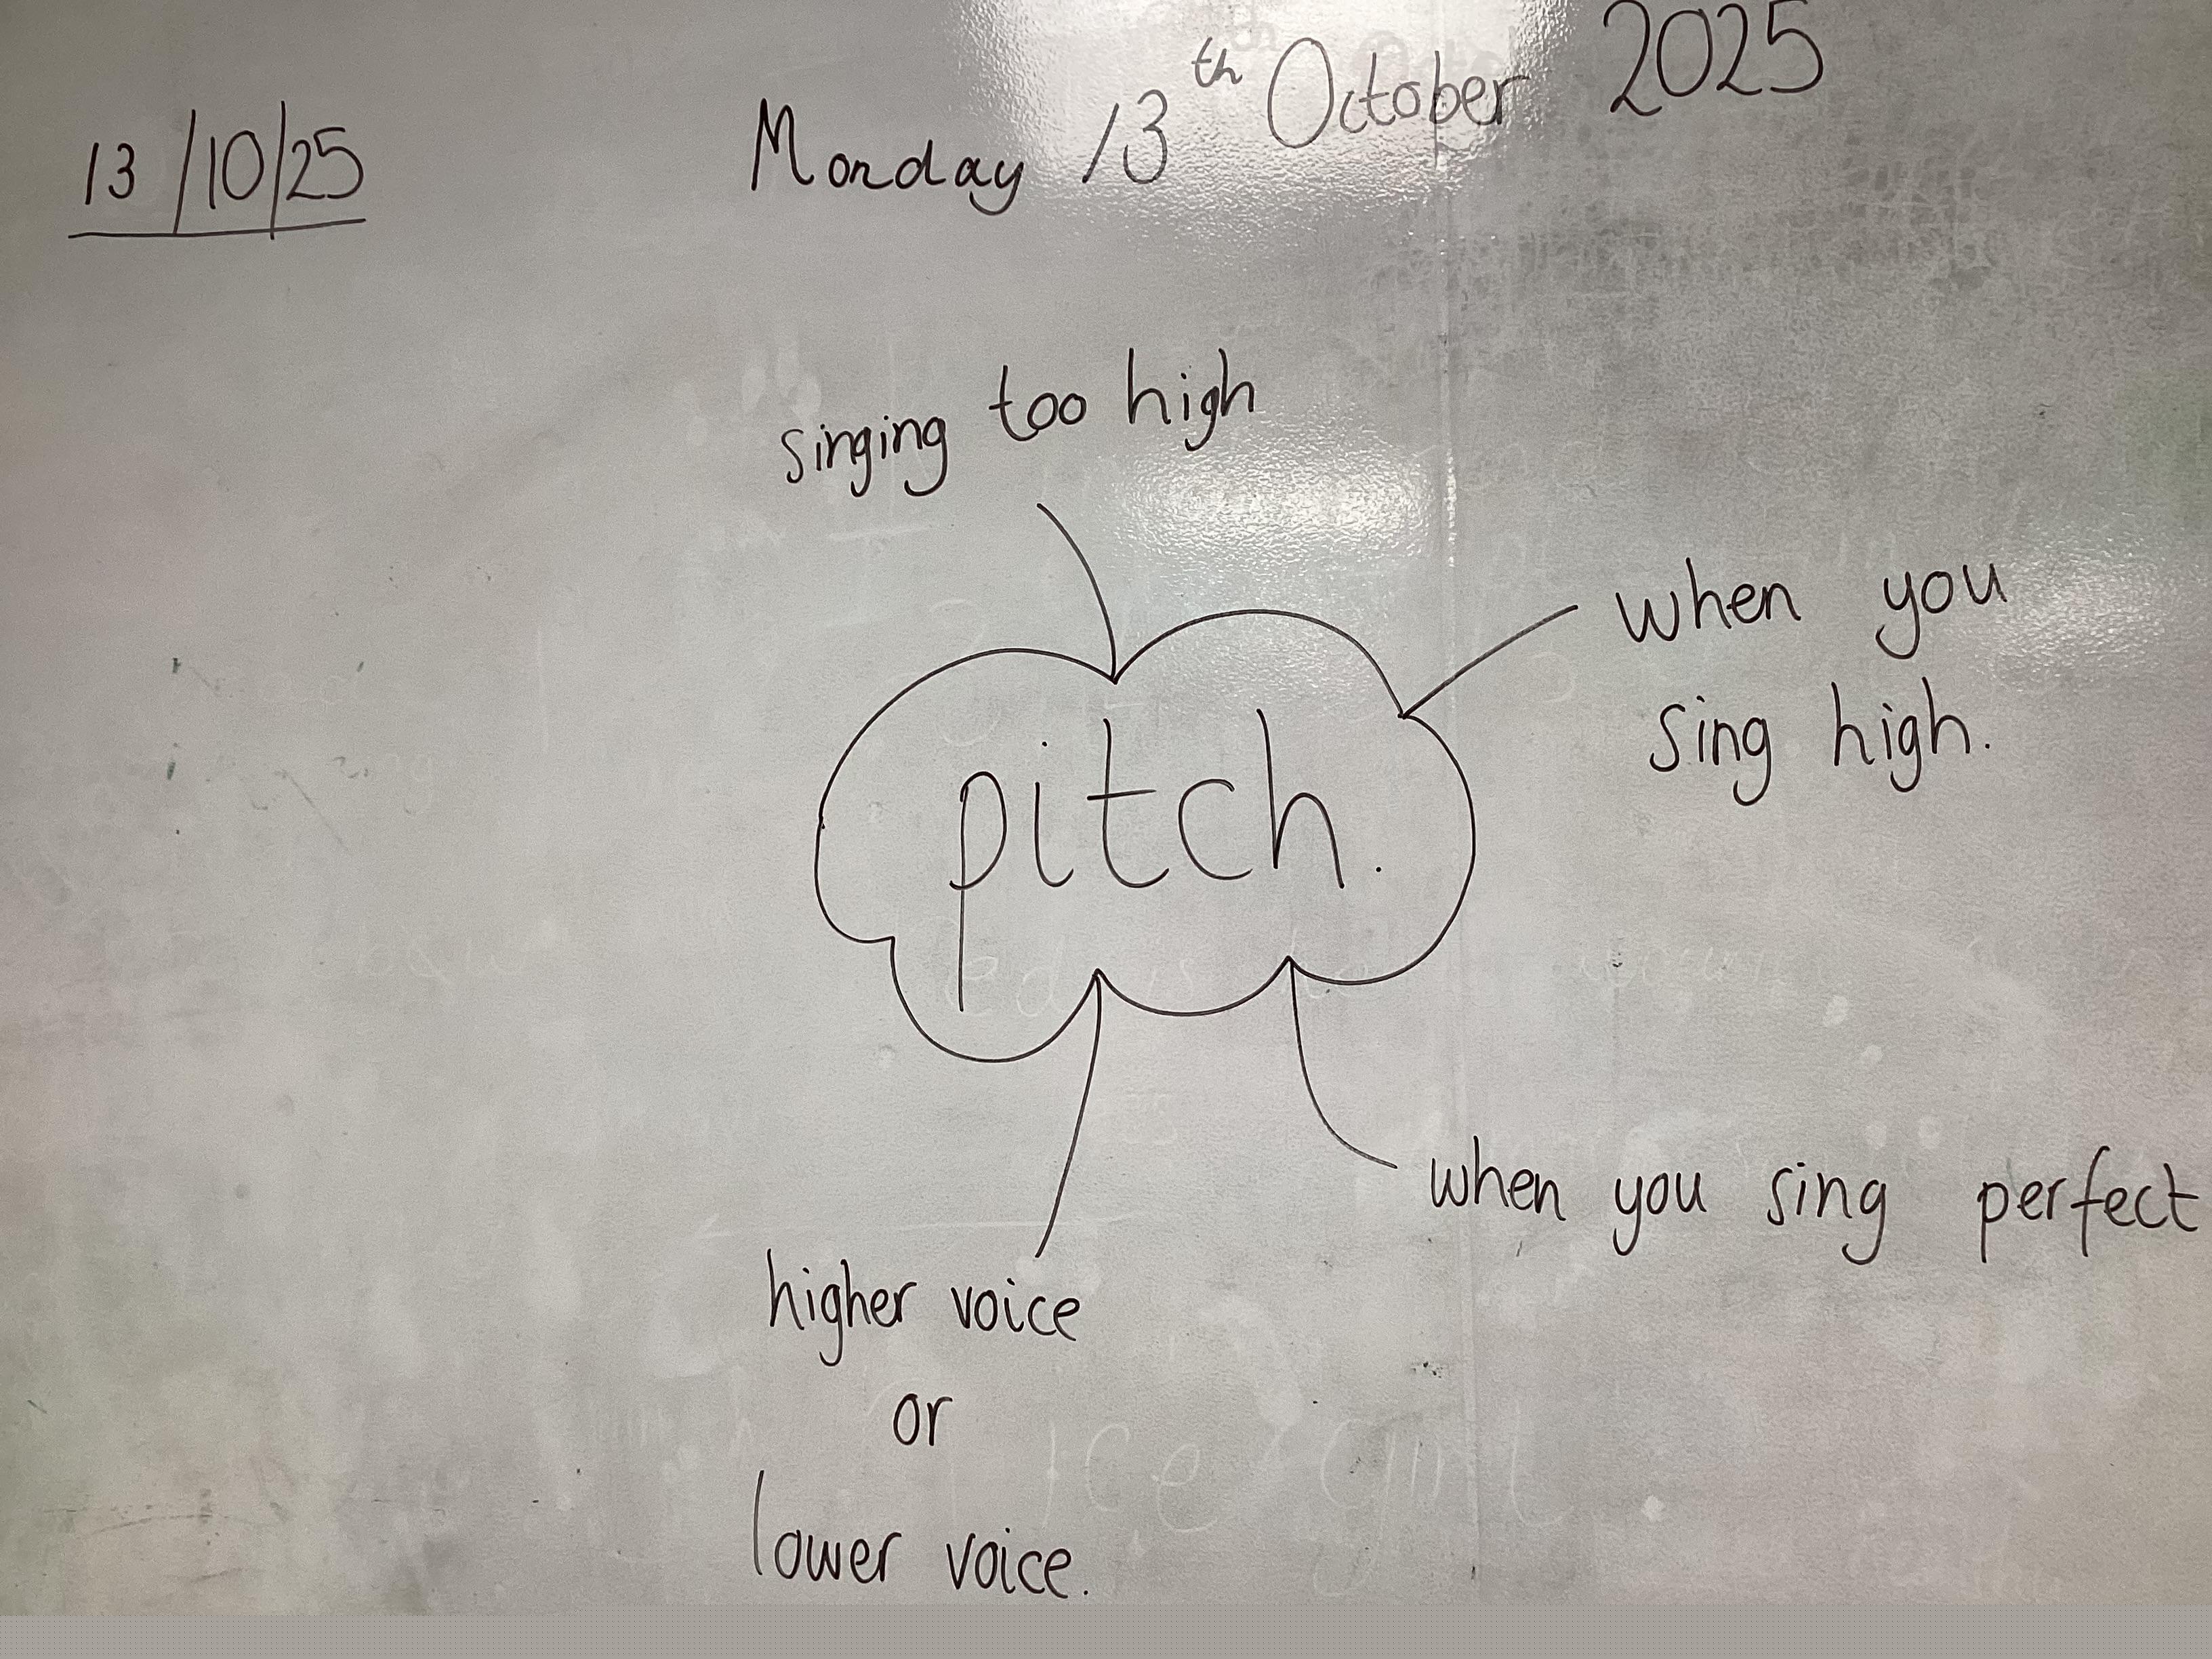 13/10/25
Monday 13th October 2025
singing too high
when you
sing high.
pitch.
when you sing perfect
higher voice
or
lower voice.